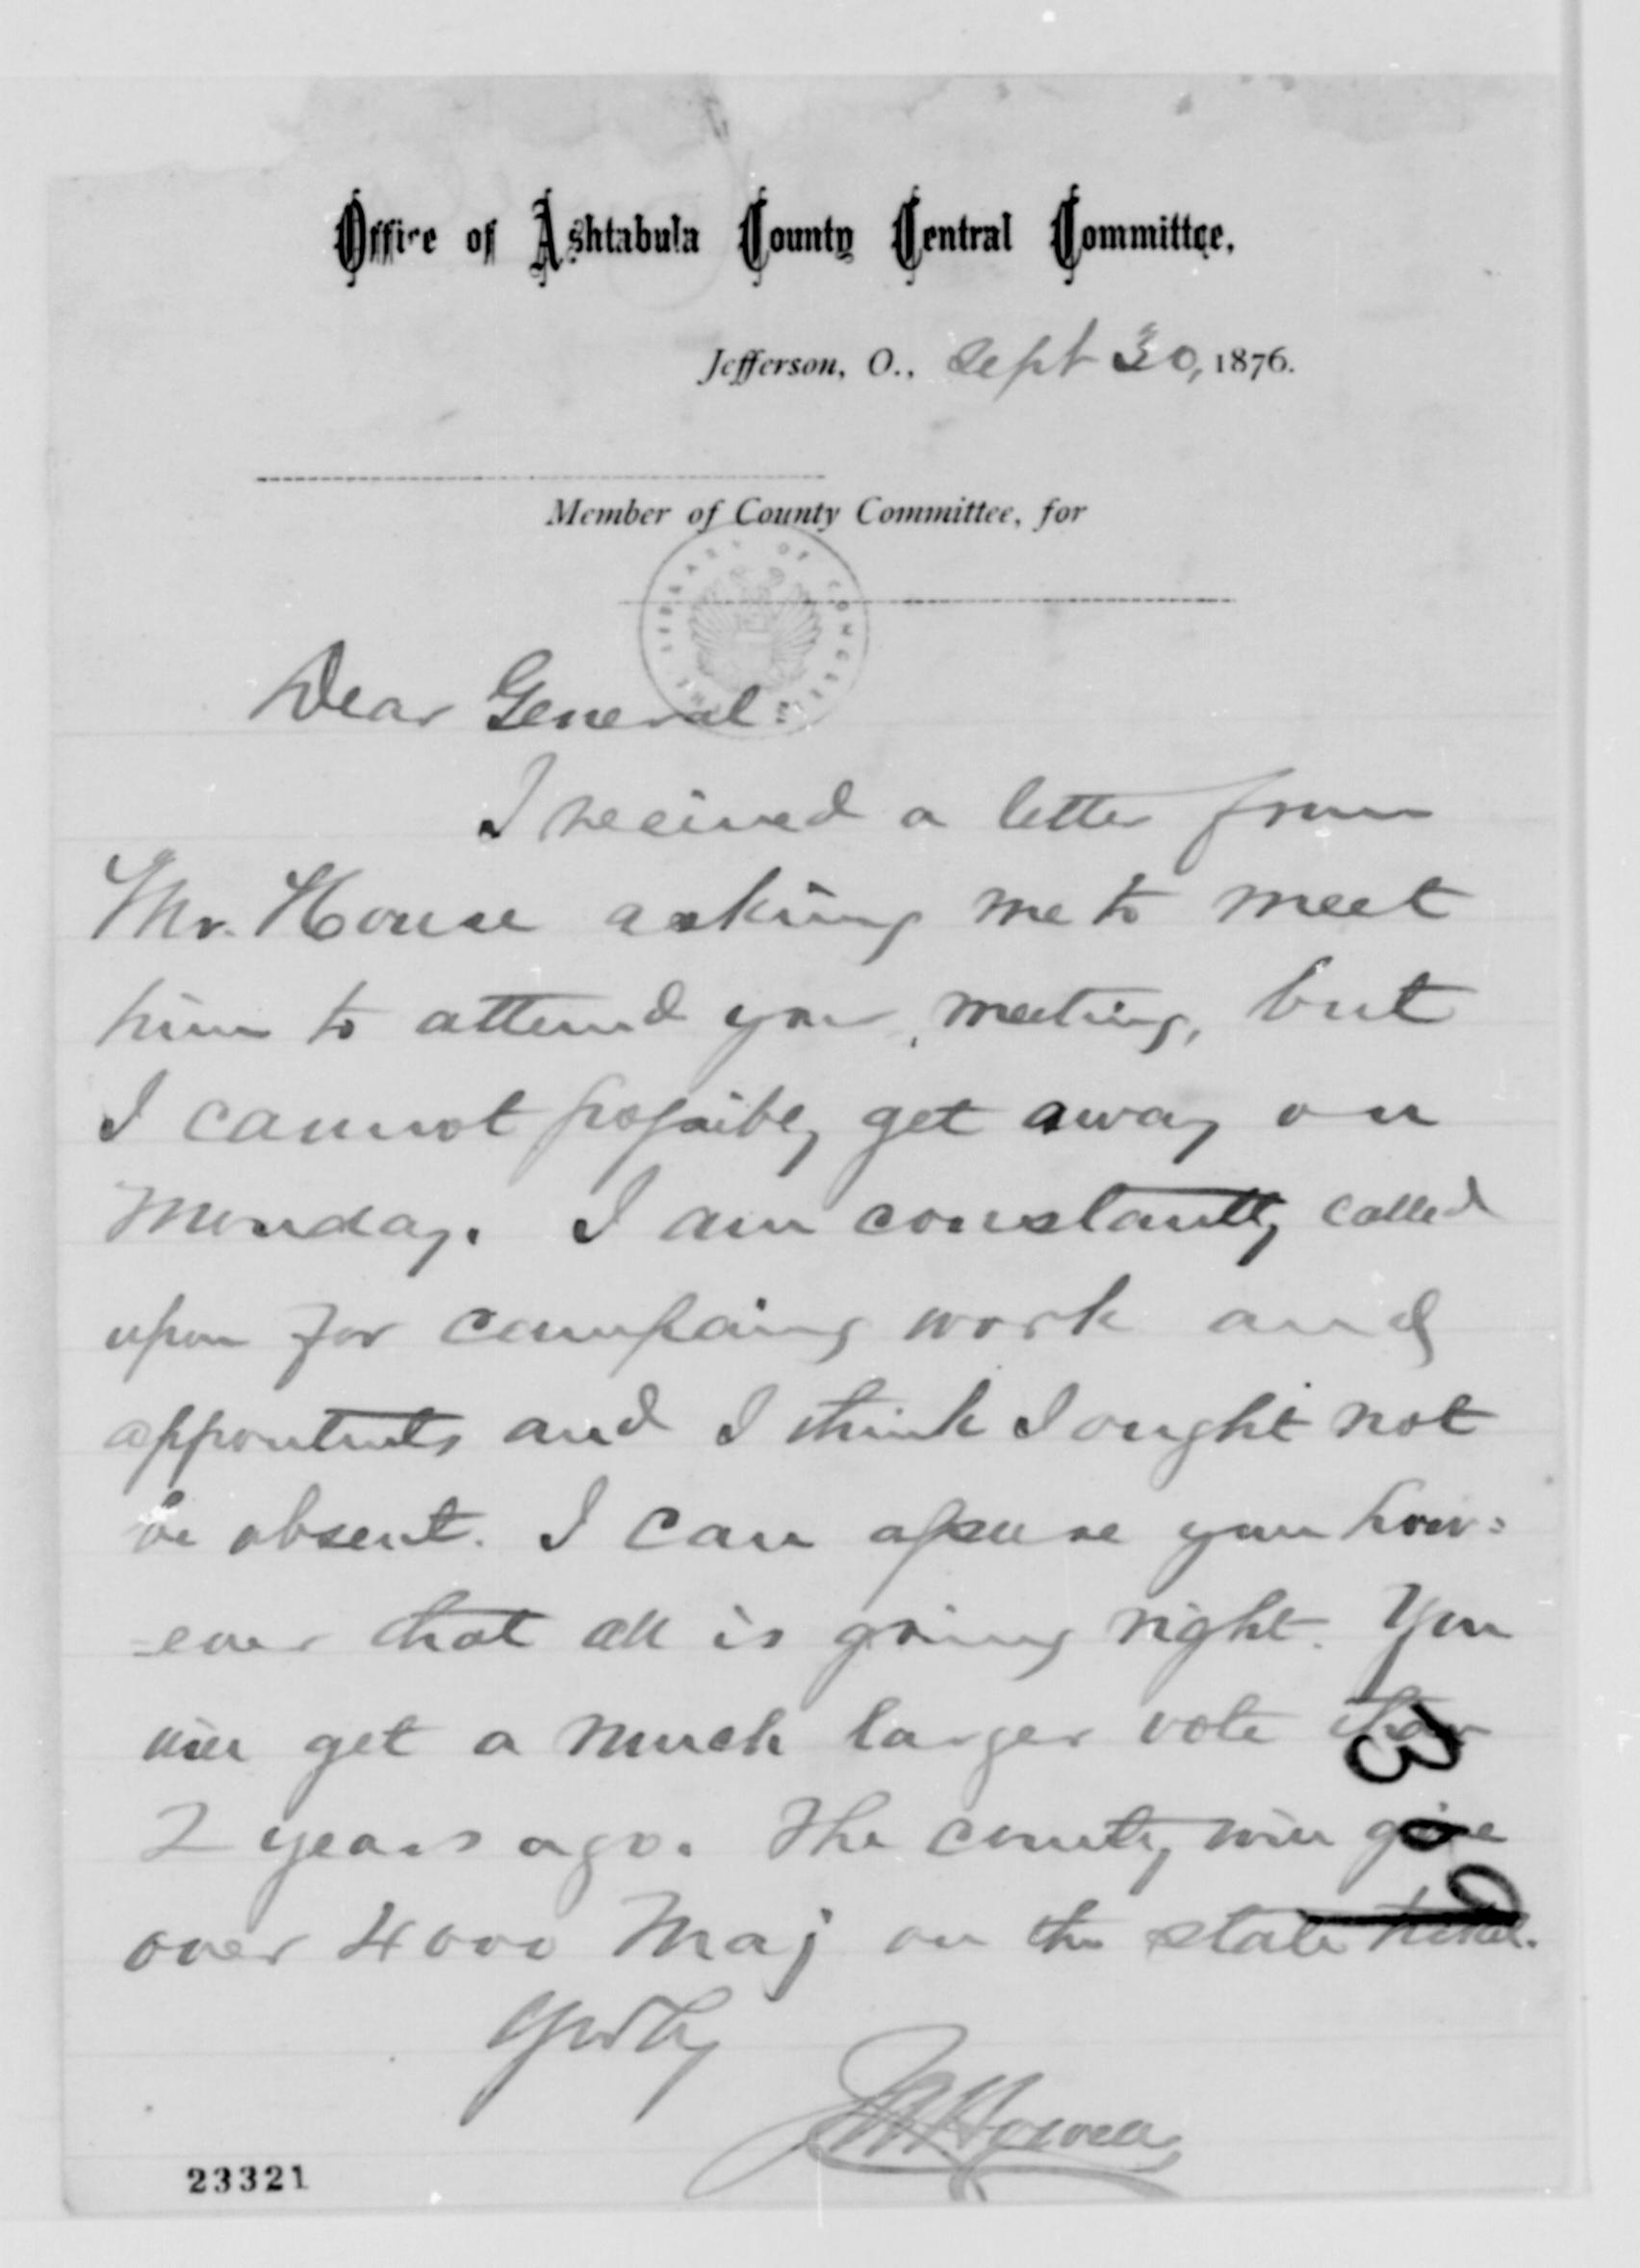 Office of Ashtabula County Central Committee,
Jefferson, O., Sept 30, 1876.
Member of County Committee, for
THE LIBRARY OF CONGRESS
Dear General:
I received a letter from
Mr. House asking me to meet
him to attend your meeting, but
I cannot possibly get away on
Monday. I am constantly called
upon for campaing work and
appointmts and I think I ought not
be absent. I can assure you how=
=ever that all is going right. You
will get a much larger vote than
2 years ago. The county will give
over 4000 Maj on the state ticket.
Yrs Try
Howell
23321